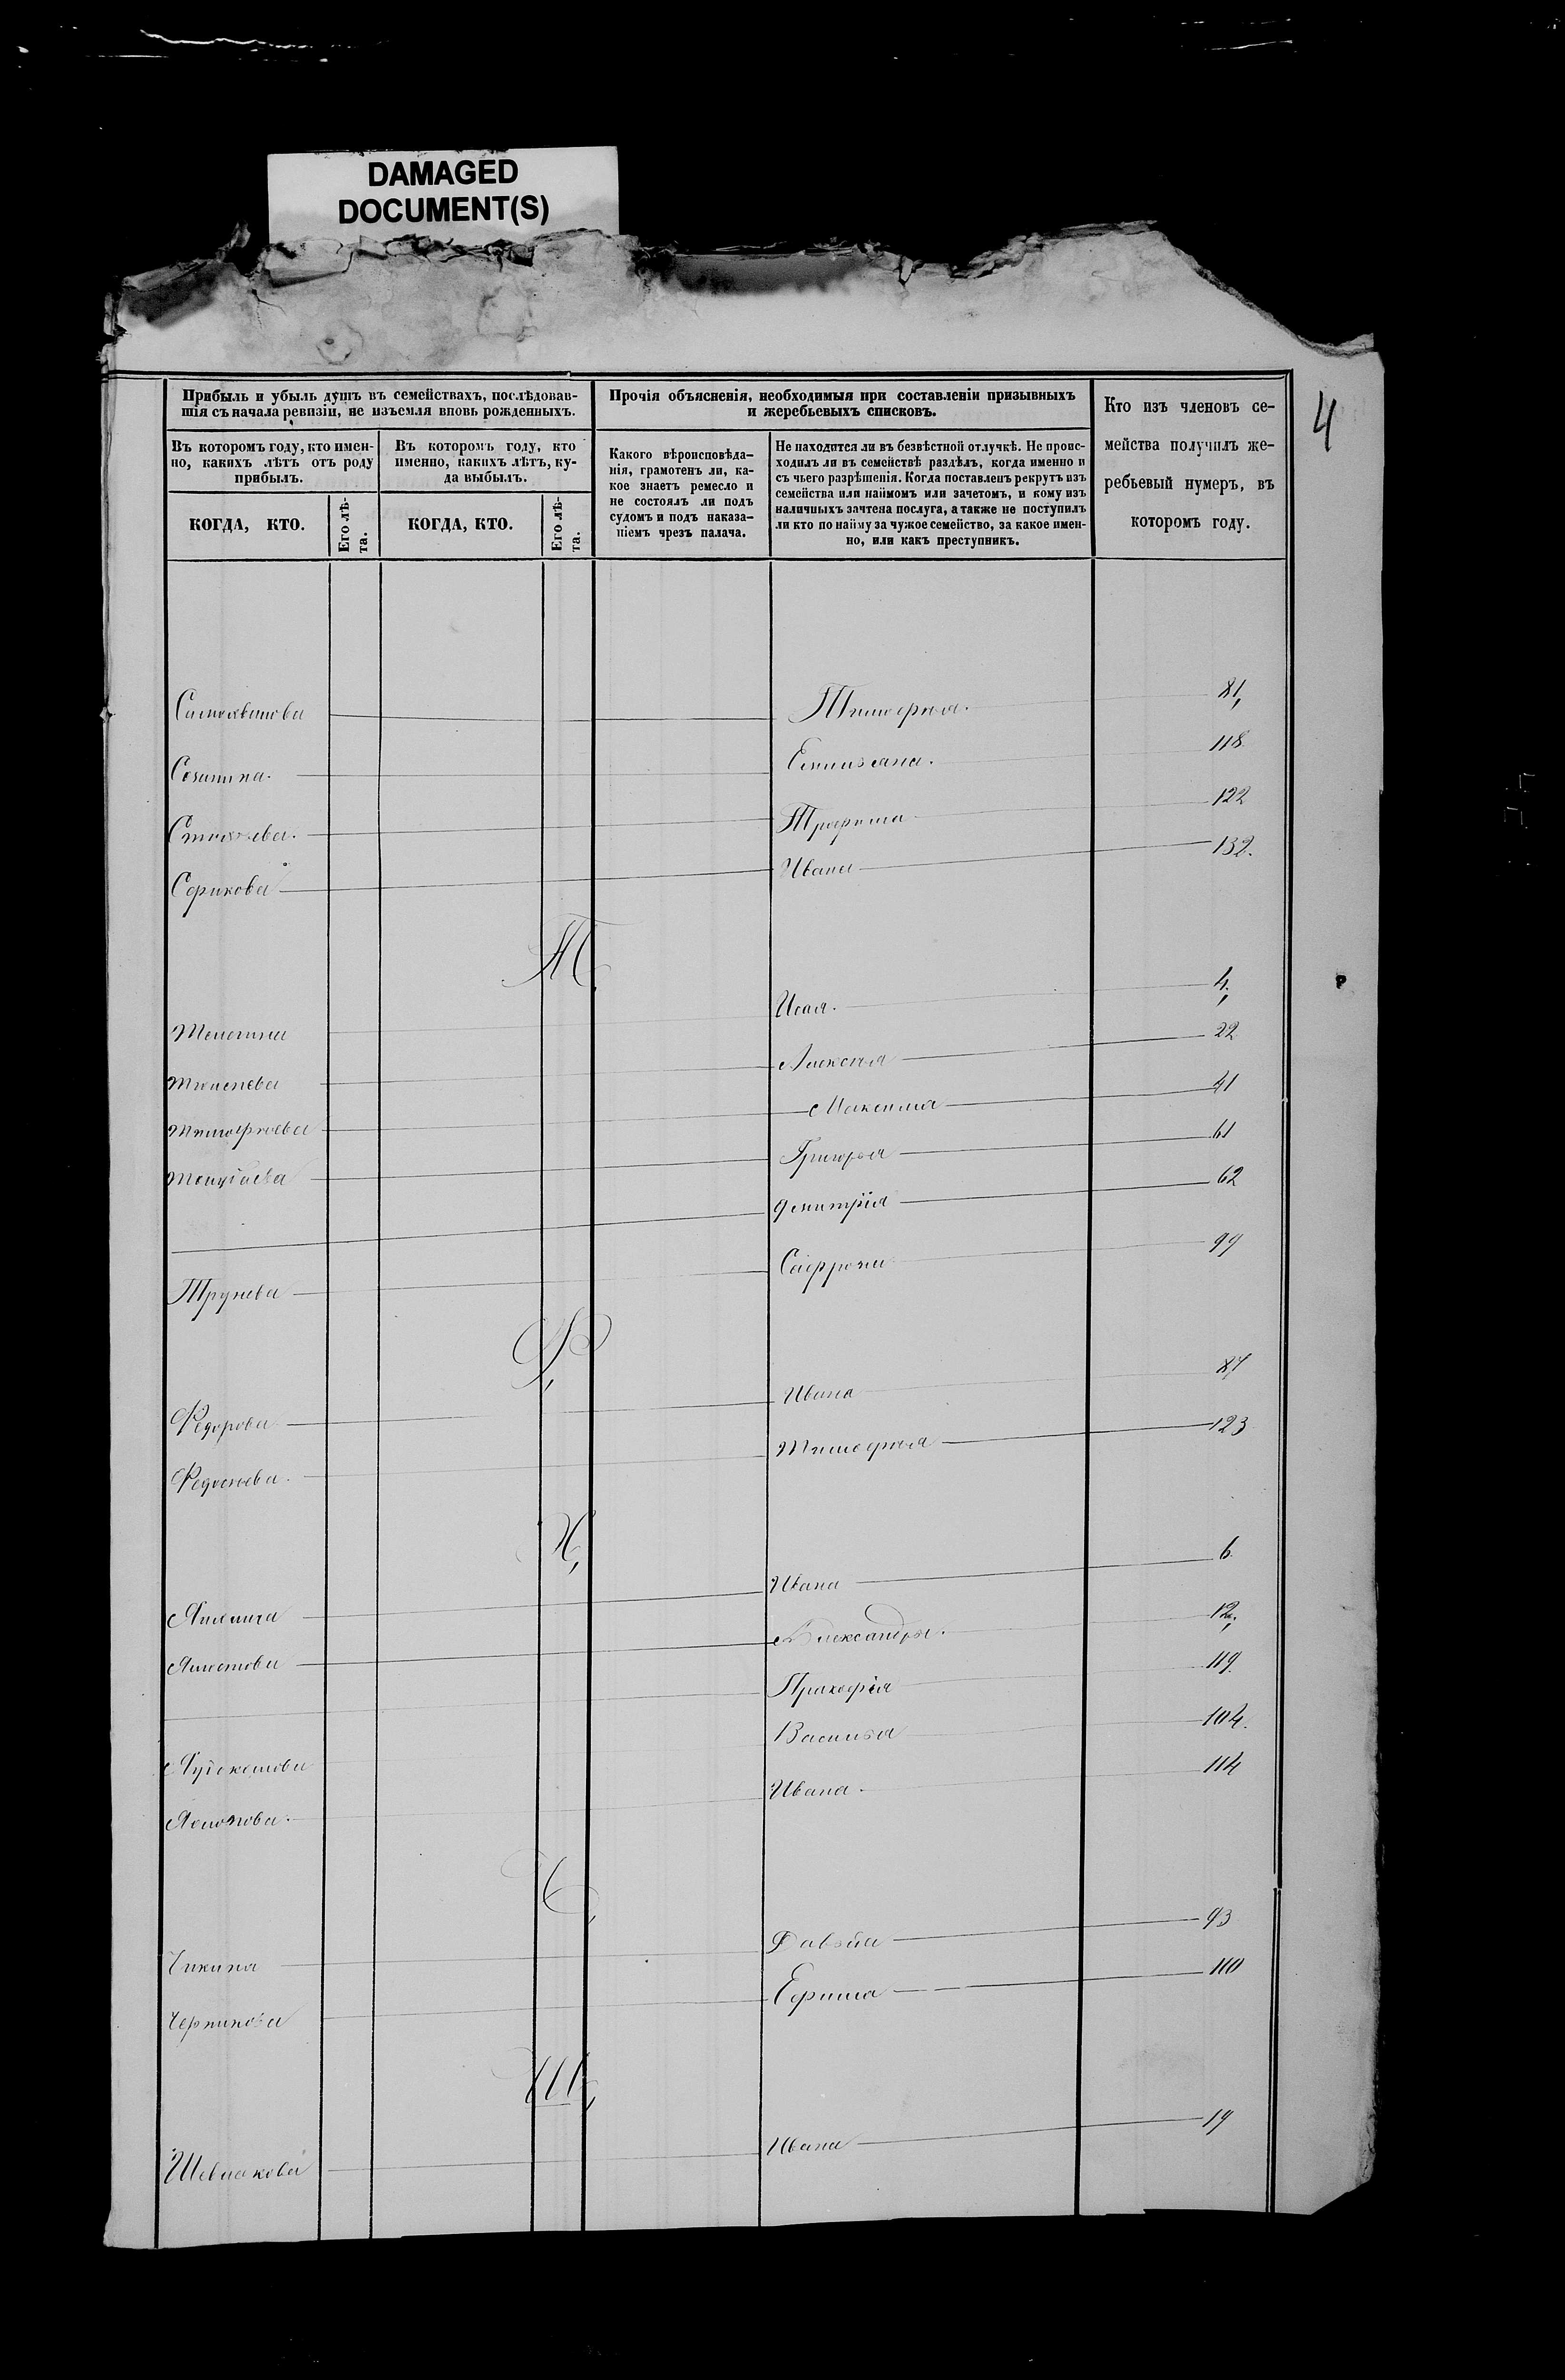 DAMAGED
DOCUMENT(S)
4
Прибыль и убыль душъ въ семействахъ, послѣдовав-
шія съ начала ревизіи, не изъемля вновь рожденныхъ.
Прочія объясненія, необходимыя при составленіи призывныхъ
и жеребьевыхъ списковъ.
Кто изъ членовъ се-
мейства получилъ же-
ребьевый нумеръ, въ
которомъ году.
Въ которомъ году, кто имен-
но, какихъ лѣтъ отъ роду
прибылъ.
Въ которомъ году, кто
именно, какихъ лѣтъ, ку-
да выбылъ.
Какого вѣроисповѣда-
нія, грамотенъ ли, ка-
кое знаетъ ремесло и
не состоялъ ли подъ
судомъ и подъ наказа-
ніемъ чрезъ палача.
Не находится ли въ безвѣстной отлучкѣ. Не проис-
ходилъ ли въ семействѣ раздѣлъ, когда именно и
съ чьего разрѣшенія. Когда поставленъ рекрутъ изъ
семейства или наймомъ или зачетомъ, и кому изъ
наличныхъ зачтена послуга, а также не поступилъ
ли кто по найму за чужое семейство, за какое имен-
но, или какъ преступникъ.
КОГДА, КТО.
Его лѣ-
та.
КОГДА, КТО.
Его лѣ-
та.
Тимофея. 81,
118
Трофима 122
Софикова Ивана 132.
Т,
Исая. 4,
Алексея 22
Тимофеева Максима 41
Григорья 61
Дмитрія 62
Трунева Сафрона 99
Ф,
Федорова Ивана 87
Федосеева. Тимофея 123
Х,
Ивана 6
Александра. 12,
Прокофія 119.
Василья 104.
Ивана. 114
Ч,
Чикина Давыда 93
Черникова Ефима 110
Ш,
Шевлякова Ивана 19